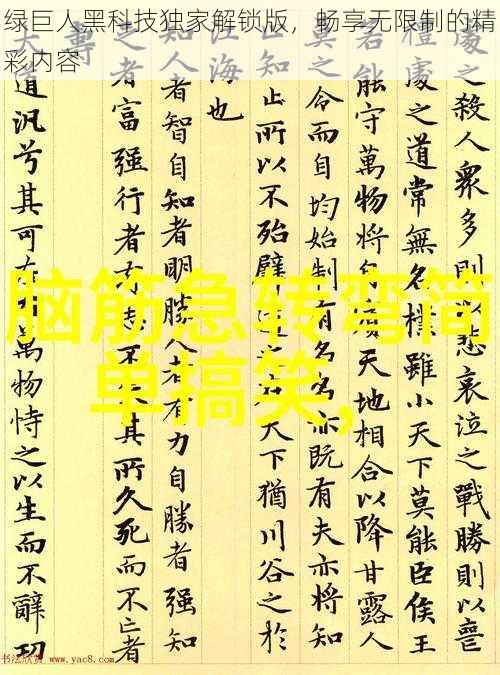 绿巨人黑科技独家解锁版，畅享无限制的精
彩内容
脑筋急转弯简
单搞笑,
處之殺人眾多則以悲哀泣之戰勝則以喪
禮處之道常無名樸雖小天下莫能臣侯王
若能守萬物將自賓天地相合以降甘露人
莫之令而自均始制有名名亦既有夫亦將知
止知止所以不殆譬道之在天下猶川谷之於
江海也
知人者智自知者明勝人者有力自勝者強知
足者富強行者有志不失其所久死而不亡者
壽
大道汎兮其可左右萬物恃之以生而不辭功
书法欣赏 www.yac8.com